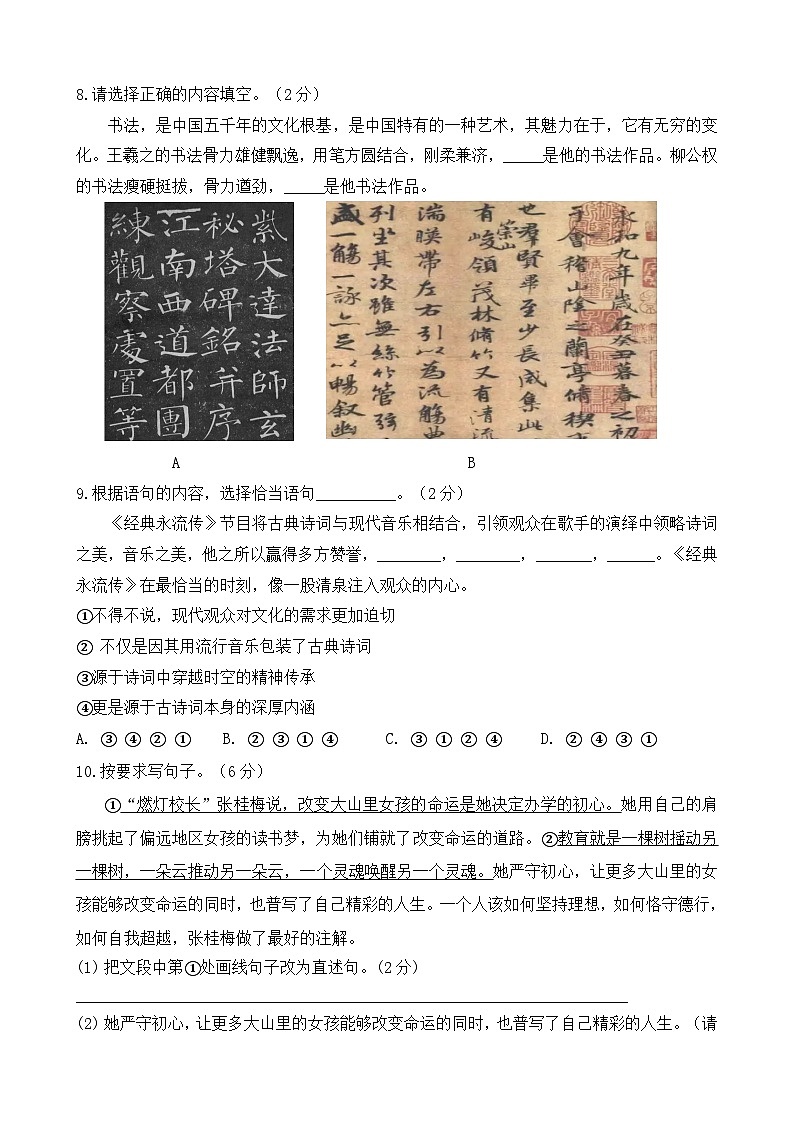 8.请选择正确的内容填空。（2 分）
书法，是中国五千年的文化根基，是中国特有的一种艺术，其魅力在于，它有无穷的变
化。王羲之的书法骨力雄健飘逸，用笔方圆结合，刚柔兼济，_____是他的书法作品。柳公权
的书法瘦硬挺拔，骨力遒劲，_____是他书法作品。
紫大達法師玄
秘塔碑銘并序
江南西道都團
練觀察處置等
永和九年歲在癸丑暮春之初
于會稽山陰之蘭亭脩禊
也羣賢畢至少長咸集此
有崇山峻領茂林脩竹又有清流
湍暎帶左右引以為流觴曲
列坐其次雖無絲竹管弦
盛一觴一詠亦足以暢叙幽
A
B
9.根据语句的内容，选择恰当语句__________。（2 分）
《经典永流传》节目将古典诗词与现代音乐相结合，引领观众在歌手的演绎中领略诗词
之美，音乐之美，他之所以赢得多方赞誉，________，________，_______，______。《经典
永流传》在最恰当的时刻，像一股清泉注入观众的内心。
①不得不说，现代观众对文化的需求更加迫切
② 不仅是因其用流行音乐包装了古典诗词
③源于诗词中穿越时空的精神传承
④更是源于古诗词本身的深厚内涵
A. ③ ④ ② ① B. ② ③ ① ④ C. ③ ① ② ④ D. ② ④ ③ ①
10.按要求写句子。（6 分）
①“燃灯校长”张桂梅说，改变大山里女孩的命运是她决定办学的初心。她用自己的肩
膀挑起了偏远地区女孩的读书梦，为她们铺就了改变命运的道路。②教育就是一棵树摇动另
一棵树，一朵云推动另一朵云，一个灵魂唤醒另一个灵魂。她严守初心，让更多大山里的女
孩能够改变命运的同时，也普写了自己精彩的人生。一个人该如何坚持理想，如何恪守德行，
如何自我超越，张桂梅做了最好的注解。
(1) 把文段中第①处画线句子改为直述句。(2 分)
(2) 她严守初心，让更多大山里的女孩能够改变命运的同时，也普写了自己精彩的人生。（请